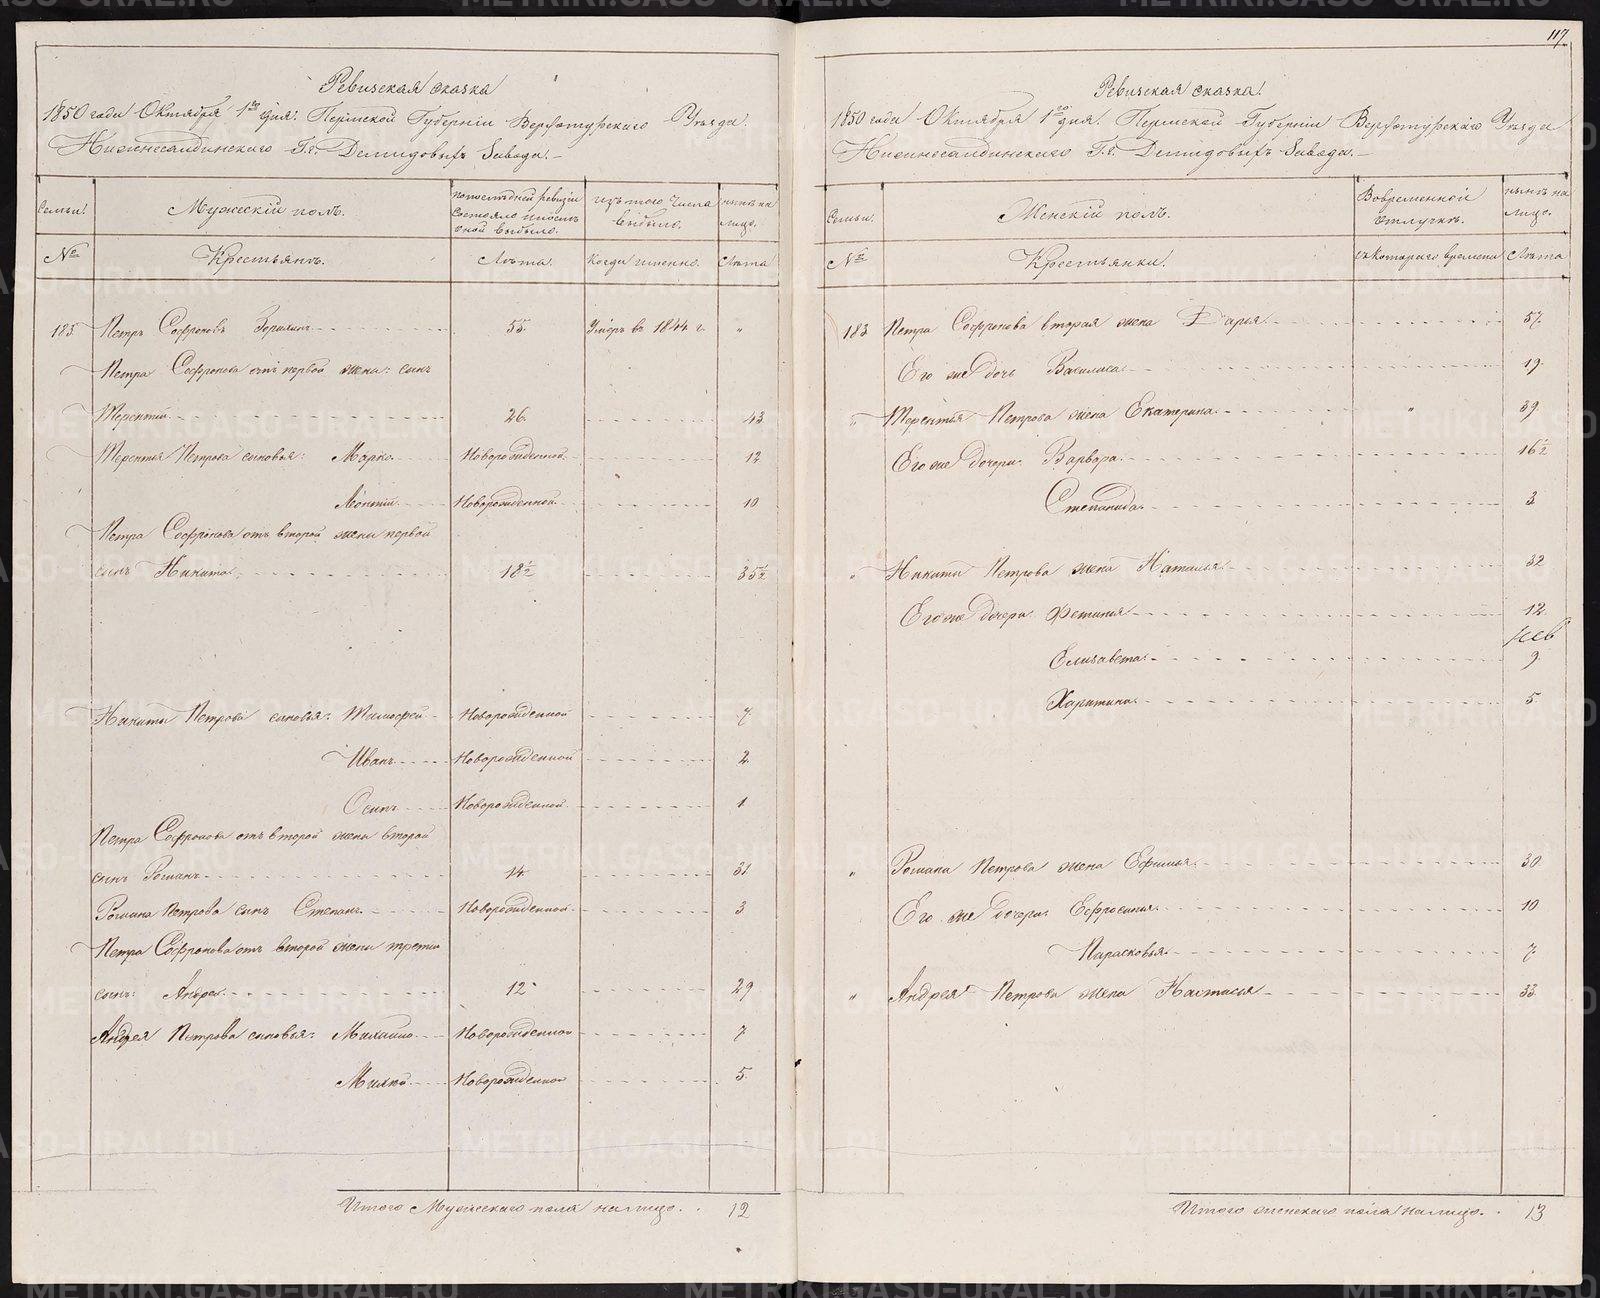 Ревизская сказка
1850 года Октября 1го дня. Пермской Губерніи Верхотурскаго Уѣзда.
Нижнесалдинскаго Г.г. Демидовыхъ Завода.
Семьи.
Мужескій полъ.
по последней ревизіи состояло и после оной выбыло.
изъ того числа выбыло.
нынѣ на лицо.
№
Крестьянъ.
Лѣта.
Когда именно.
Лѣта
183
Петръ Софроновъ
55.
Умеръ въ 1844 г.
"
Петра Софронова отъ первой жены: сынъ
Терентій
26.
43
Терентья Петрова сыновья: Марко
Новорожденной
12
Леонтій
Новорожденной
10
Петра Софронова отъ второй жены первой
сынъ Никита
18 1/2
35 1/2
Никиты Петрова сыновья: Тимофей
Новорожденной
7.
Иванъ
Новорожденной
2
Осипъ
Новорожденной
1
Петра Софронова отъ второй жены второй
сынъ Романъ
14.
31
Романа Петрова сынъ Степанъ
Новорожденной
3
Петра Софронова отъ второй жены третій
сынъ: Андрей
12
29
Андрея Петрова сыновья: Михайло
Новорожденной
7
Новорожденной
5.
Итого Мужескаго пола на лицо.
12
117.
Ревизская сказка.
1850 года Октября 1го дня. Пермской Губерніи Верхотурскаго Уѣзда
Нижнесалдинскаго Г.г. Демидовыхъ Завода.
Семьи.
Женскій полъ.
Во временной отлучкѣ.
нынѣ на лицо.
№
Крестьянки.
съ котораго времени
Лѣта
183
Петра Софронова вторая жена Дарья
57.
Его же дочь Василиса
19.
" Терентья Петрова жена Екатерина
"
39.
Его же дочери. Варвара
16 1/2
Степанида
3
" Никиты Петрова жена Наталья
32
Его же дочери. Фетинья
12.
Елизавета
9.
Харитина
5.
" Романа Петрова жена Ефимья
30
Его же дочери. Ефросинья
10
Парасковья
7
" Андрея Петрова жена Настасья
33.
Итого женскаго пола на лицо.
13
METRIKI.GASO-URAL.RU